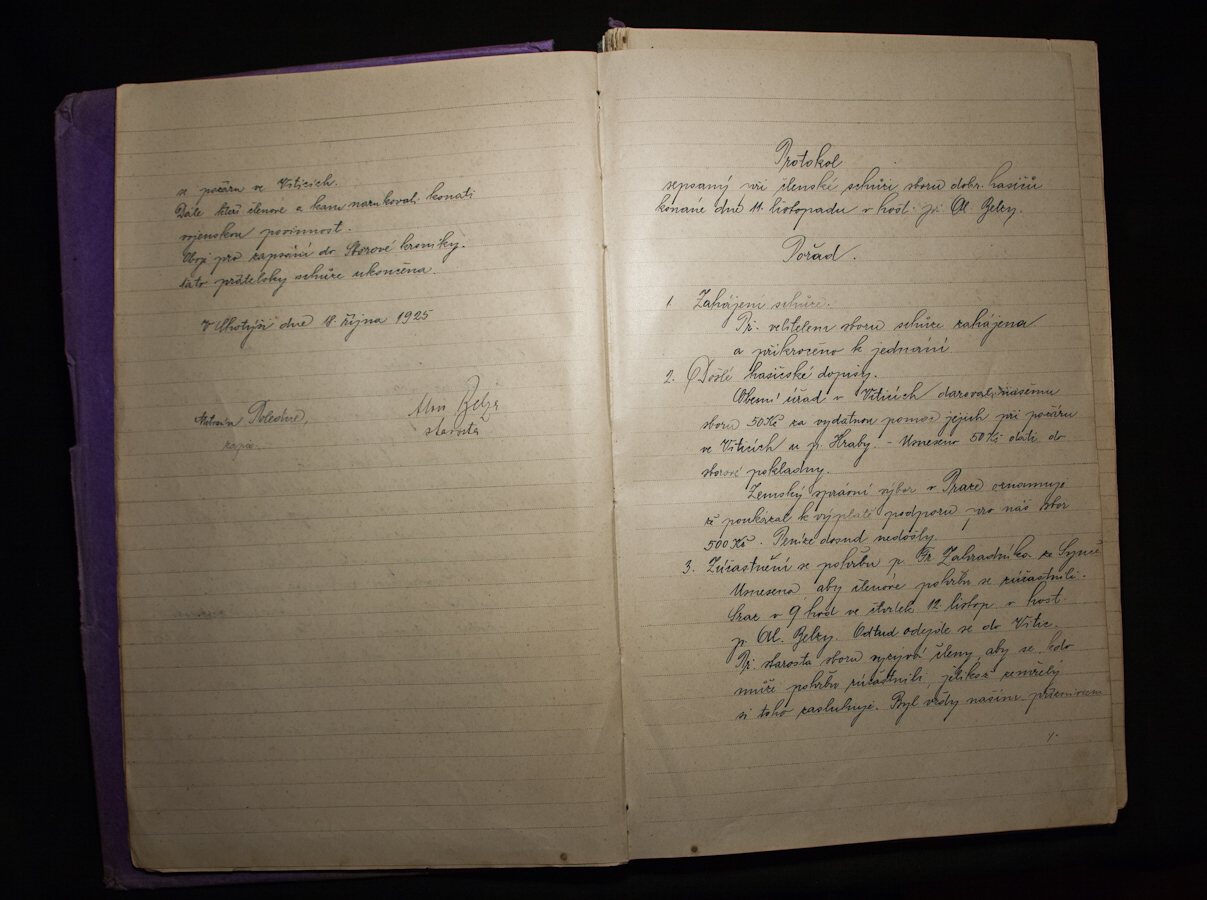 se požáru ve Viticích.
Dále kteří členové a kam narukovali konati
vojenskou povinnost.
Obojí pro zapsání do Sborové kroniky.
tato přátelsky schůze ukončena.
V Chotýši dne 18. října 1925
Poledne,
zapis.
Alois Belza
starosta
Protokol
sepsaný při členské schůzi sboru dobr. hasičů
konané dne 11. listopadu v host. p. Al. Belzy.
Pořad.
1. Zahájem schůze.
Br. velitelem sboru schůze zahájena
a přikročeno k jednání
2. Došlé hasičské dopisy.
Obecní úřad v Viticích daroval našemu
sboru 50 Kč za vydatnou pomoc jejich při požáru
ve Viticích u p. Hraby. - Usneseno 50 Kč dáti do
sborové pokladny.
Zemský správní výbor v Praze oznamuje
že poukázal k výplatě podporu pro náš sbor
500 Kč. Peníze dosud nedošly.
3. Zúčastnění se pohřbu p. Fr. Zahradníka ze Synče
Usneseno, aby členové pohřbu se zúčastnili.
Sraz v 9 hod ve čtvrtek 12. listop. v host.
p. Al. Belzy. Odtud odejde se do Vitic.
Br. starosta sboru vyzývá členy aby se, kdo
může pohřbu zúčastnili, jelikož zemřelý
si toho zasluhuje. Byl vždy naším příznivcem